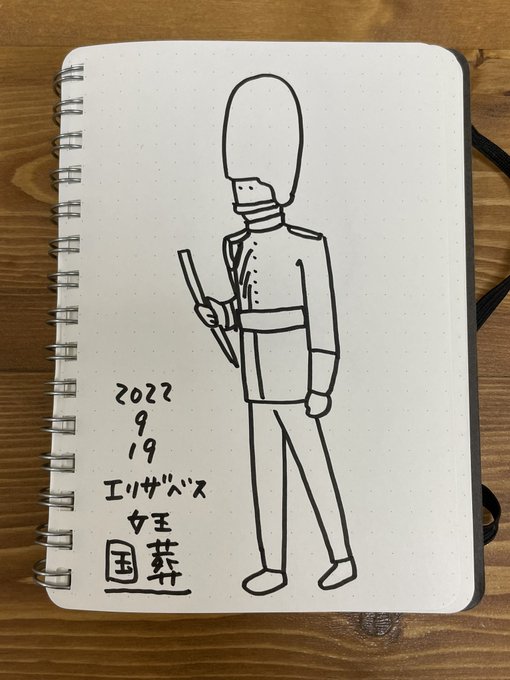 2022
9
19
エリザベス
女王
国葬